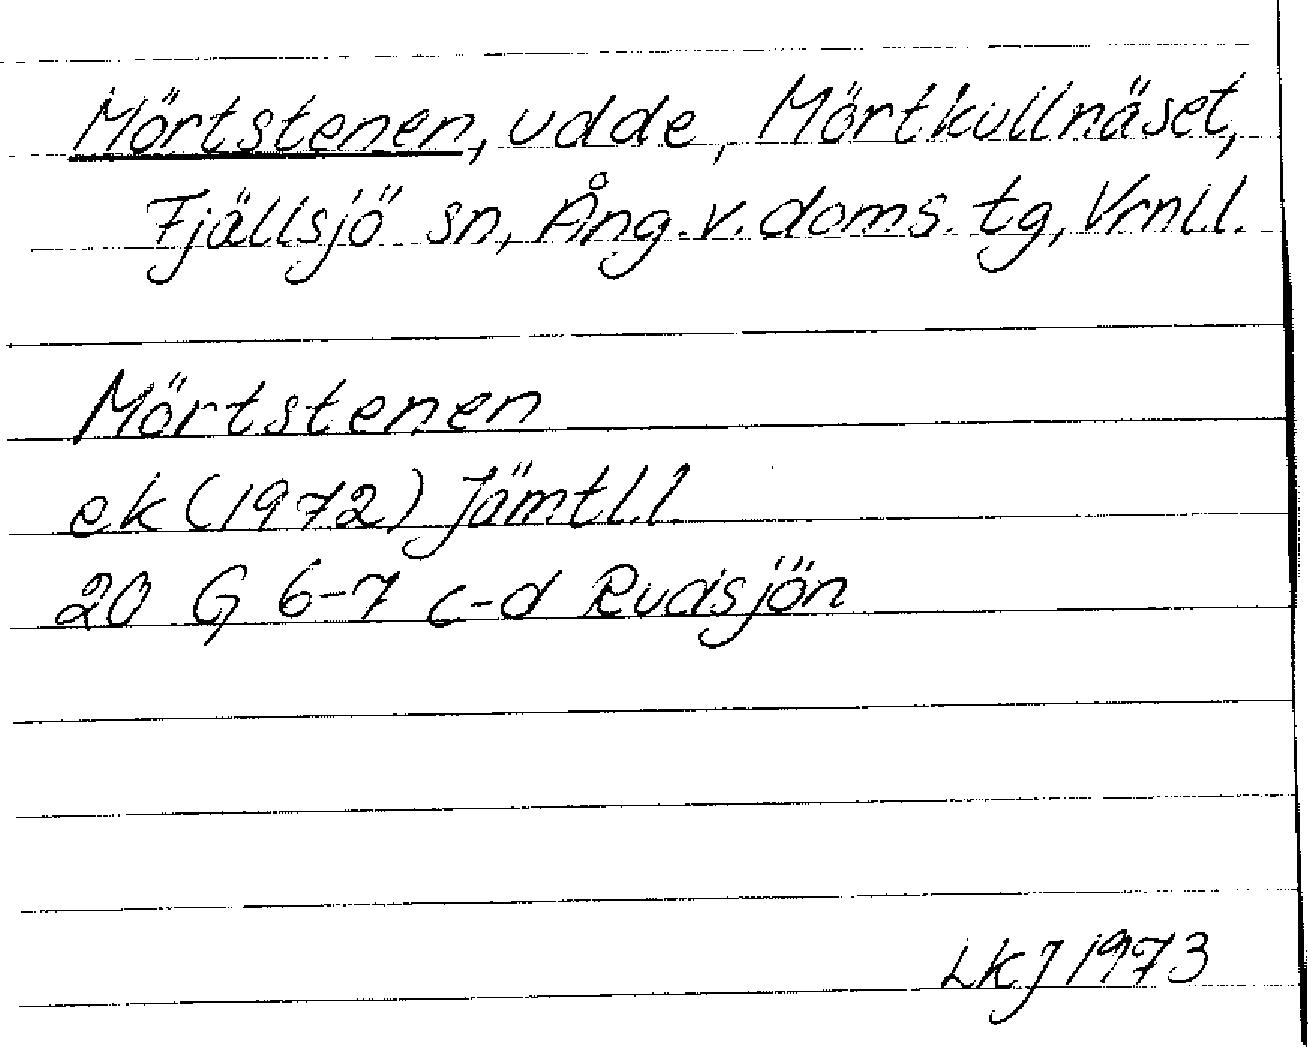 Mörtstenen, udde, Mörtkullnäset,
Fjällsjö sn, Ång. v. doms. tg, Vrnl.l.
Mörtstenen
ek (1972) Jämtl.l.
20 G 6-7 c-d Rudsjön
LKJ 1973